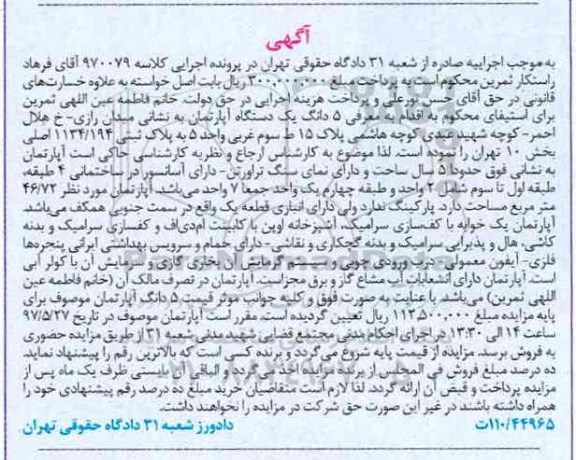 آگهی
به موجب اجراییه صادره از شعبه ۳۱ دادگاه حقوقی تهران در پرونده اجرایی کلاسه ۹۷۰۰۷۹ آقای فرهاد
راستکار ثمرین محکوم است به پرداخت مبلغ ۳۰۰,۰۰۰,۰۰۰ ریال بابت اصل خواسته به علاوه خسارت‌های
قانونی در حق آقای حسن نورعلی و پرداخت هزینه اجرایی در حق دولت. خانم فاطمه عین اللهی ثمرین
برای استیفای محکوم به اقدام به معرفی ۵ دانگ یک دستگاه آپارتمان به نشانی میدان رازی- خ هلال
احمر- کوچه شهید عبدی کوچه هاشمی پلاک ۱۵ ط سوم غربی واحد ۵ به پلاک ثبتی ۱۱۳۴/۱۹۴ اصلی
بخش ۱۰ تهران را نموده است. لذا موضوع به کارشناس ارجاع و نظریه کارشناسی حاکی است آپارتمان
به نشانی فوق حدوداً ۵ سال ساخت و دارای نمای سنگ تراورتن- دارای آسانسور در ساختمانی ۴ طبقه،
طبقه اول تا سوم شامل ۲ واحد و طبقه چهارم یک واحد جمعاً ۷ واحد می‌باشد. آپارتمان مورد نظر ۴۶/۷۲
متر مربع مساحت دارد. پارکینگ ندارد ولی دارای انباری قطعه یک واقع در سمت جنوبی همکف می‌باشد.
آپارتمان یک خوابه با کف‌سازی سرامیک، آشپزخانه اوپن با کابینت ام‌دی‌اف و کفسازی سرامیک و بدنه
کاشی، هال و پذیرایی سرامیک و بدنه گچکاری و نقاشی- دارای حمام و سرویس بهداشتی ایرانی پنجره‌ها
فلزی- آیفون معمولی- درب ورودی چوبی و سیستم گرمایش آن بخاری گازی و سرمایش آن با کولر آبی
است. آپارتمان دارای انشعابات آب مشاع گاز و برق مجزاست. آپارتمان در تصرف مالک آن (خانم فاطمه عین
اللهی ثمرین) می‌باشد. با عنایت به صورت فوق و کلیه جوانب موثر قیمت ۵ دانگ آپارتمان موصوف برای
پایه مزایده مبلغ ۱۱۲,۵۰۰,۰۰۰ ریال تعیین گردیده است. مقرر است آپارتمان موصوف در تاریخ ۹۷/۵/۲۷
ساعت ۱۴ الی ۱۳:۳۰ در اجرای احکام مدنی مجتمع قضایی شهید مدنی شعبه ۳۱ از طریق مزایده حضوری
به فروش برسد. مزایده از قیمت پایه شروع می‌گردد و برنده کسی است که بالاترین رقم را پیشنهاد نماید.
ده درصد مبلغ فروش فی المجلس از برنده مزایده اخذ می گردد و الباقی را بایستی ظرف یک ماه پس از
مزایده پرداخت و قبض آن ارائه گردد. لذا لازم است متقاضیان خرید مبلغ ده درصد رقم پیشنهادی خود را
همراه داشته باشند در غیر این صورت حق شرکت در مزایده را نخواهند داشت.
۱۱۰/۴۴۹۶۵ت دادورز شعبه ۳۱ دادگاه حقوقی تهران